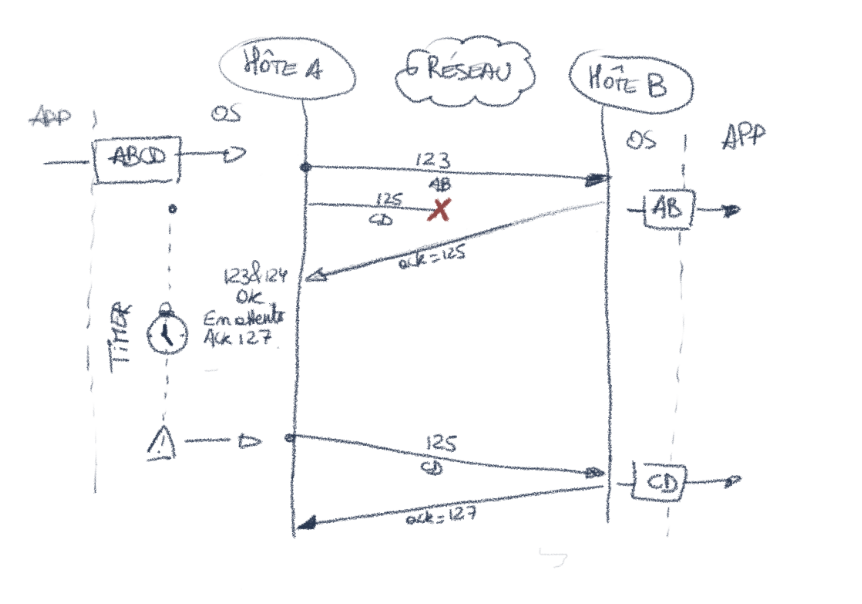 HÔTE A
RÉSEAU
HÔTE B
APP
OS
OS
APP
ABCD
123
AB
125
CD
AB
ack=125
123&124
OK
En attente
Ack 127
TIMER
125
CD
CD
ack=127